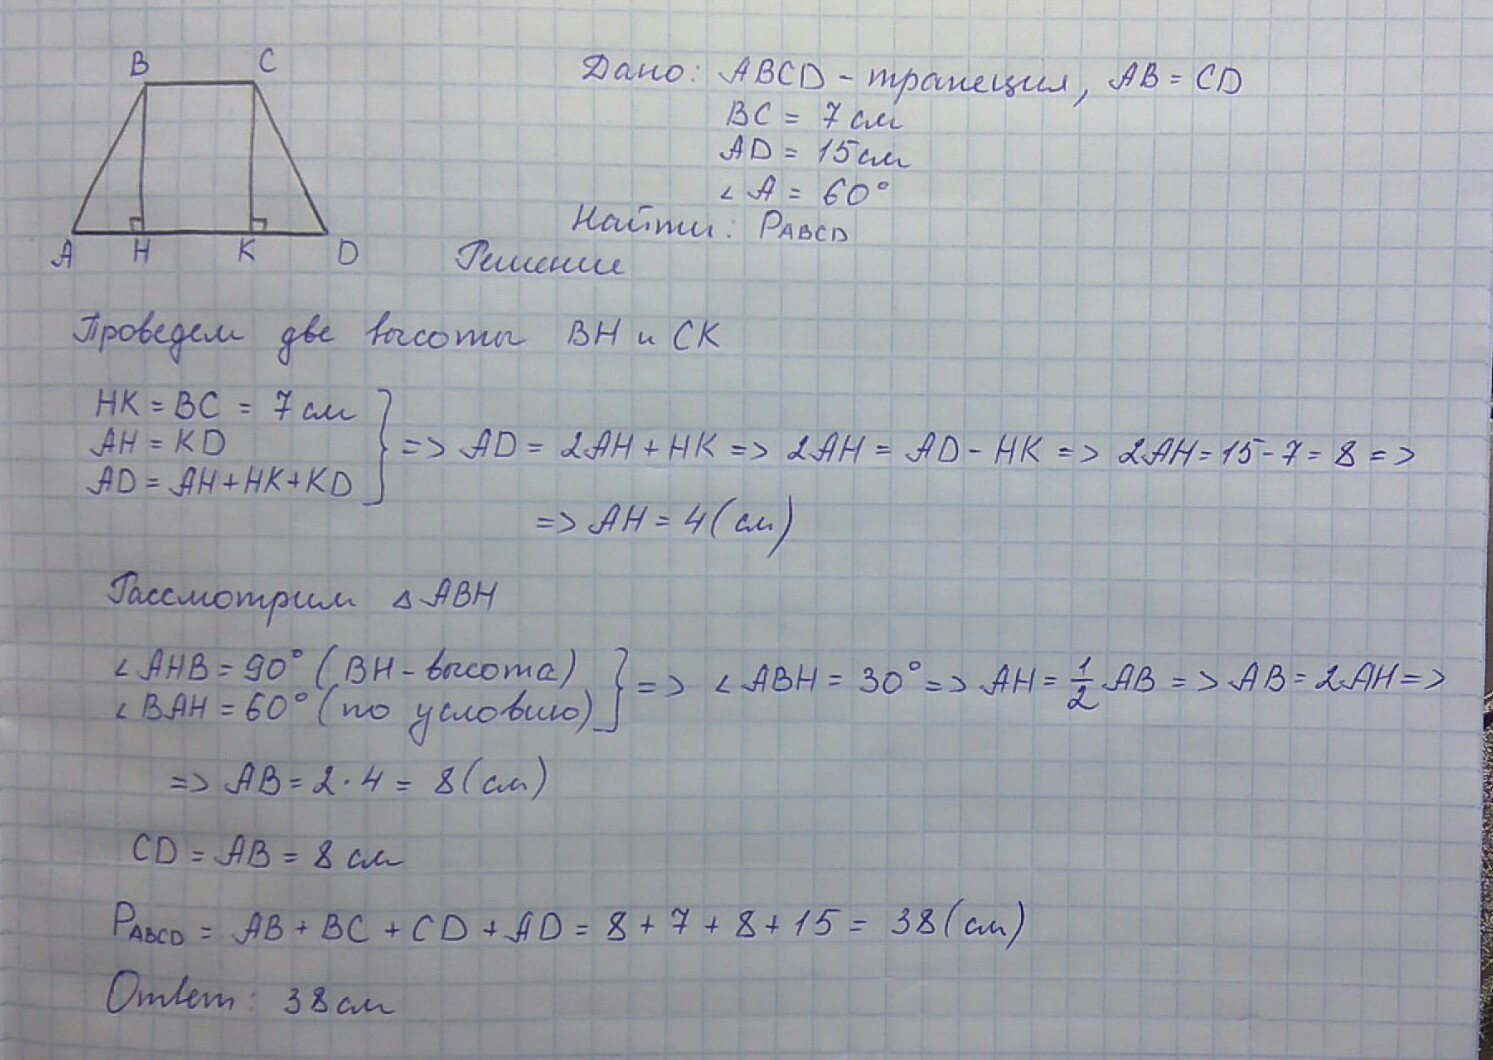 B C
A H K D
Дано: ABCD - трапеция, AB = CD
BC = 7 см
AD = 15 см
∠A = 60°
Найти: P_ABCD
Решение
Проведем две высоты BH и CK
HK = BC = 7 см
AH = KD
AD = AH + HK + KD
=> AD = 2AH + HK => 2AH = AD - HK => 2AH = 15 - 7 = 8 =>
=> AH = 4 (см)
Рассмотрим △ABH
∠AHB = 90° (BH - высота)
∠BAH = 60° (по условию)
=> ∠ABH = 30° => AH = 1/2 AB => AB = 2AH =>
=> AB = 2 · 4 = 8 (см)
CD = AB = 8 см
P_ABCD = AB + BC + CD + AD = 8 + 7 + 8 + 15 = 38 (см)
Ответ: 38 см